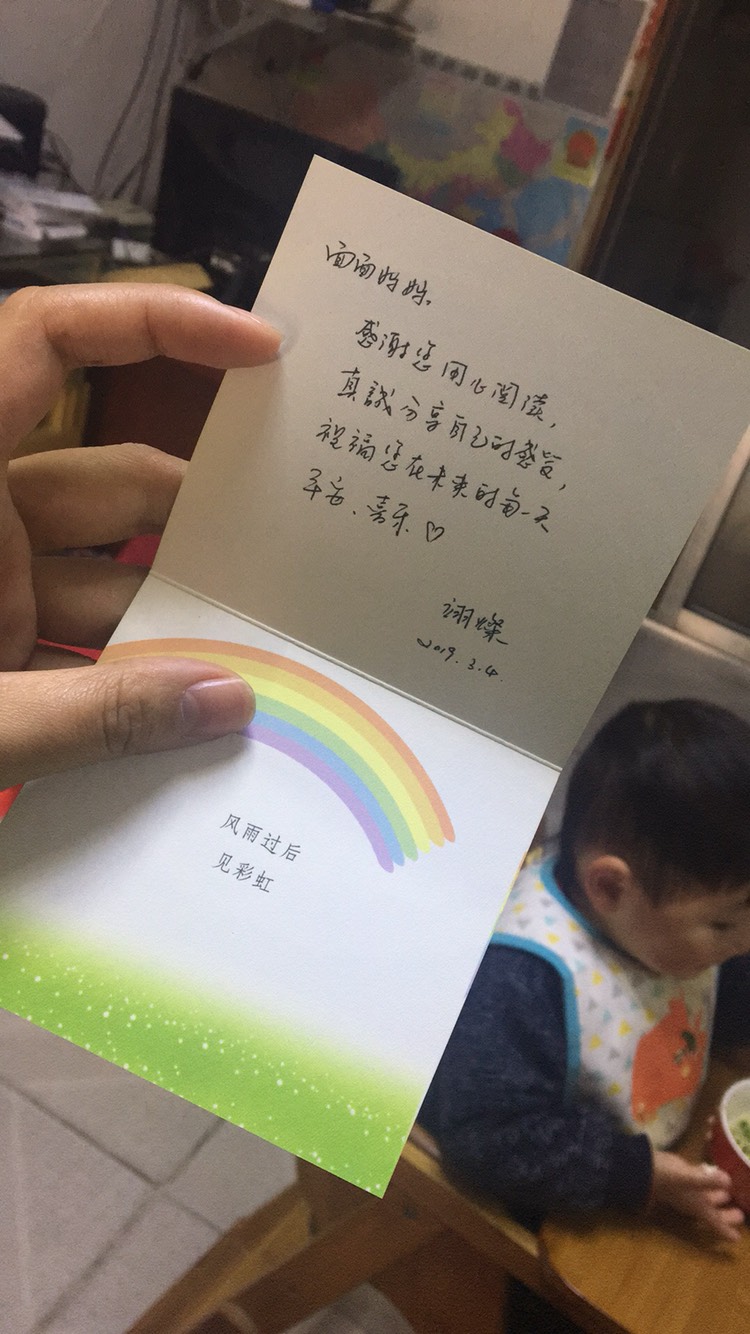 面面姐姐，
感谢您用心阅读，
真誠分享自己的感受，
祝福您在未来的每一天
平安、喜乐♡
翊燦
2019.3.4.
风雨过后
见彩虹